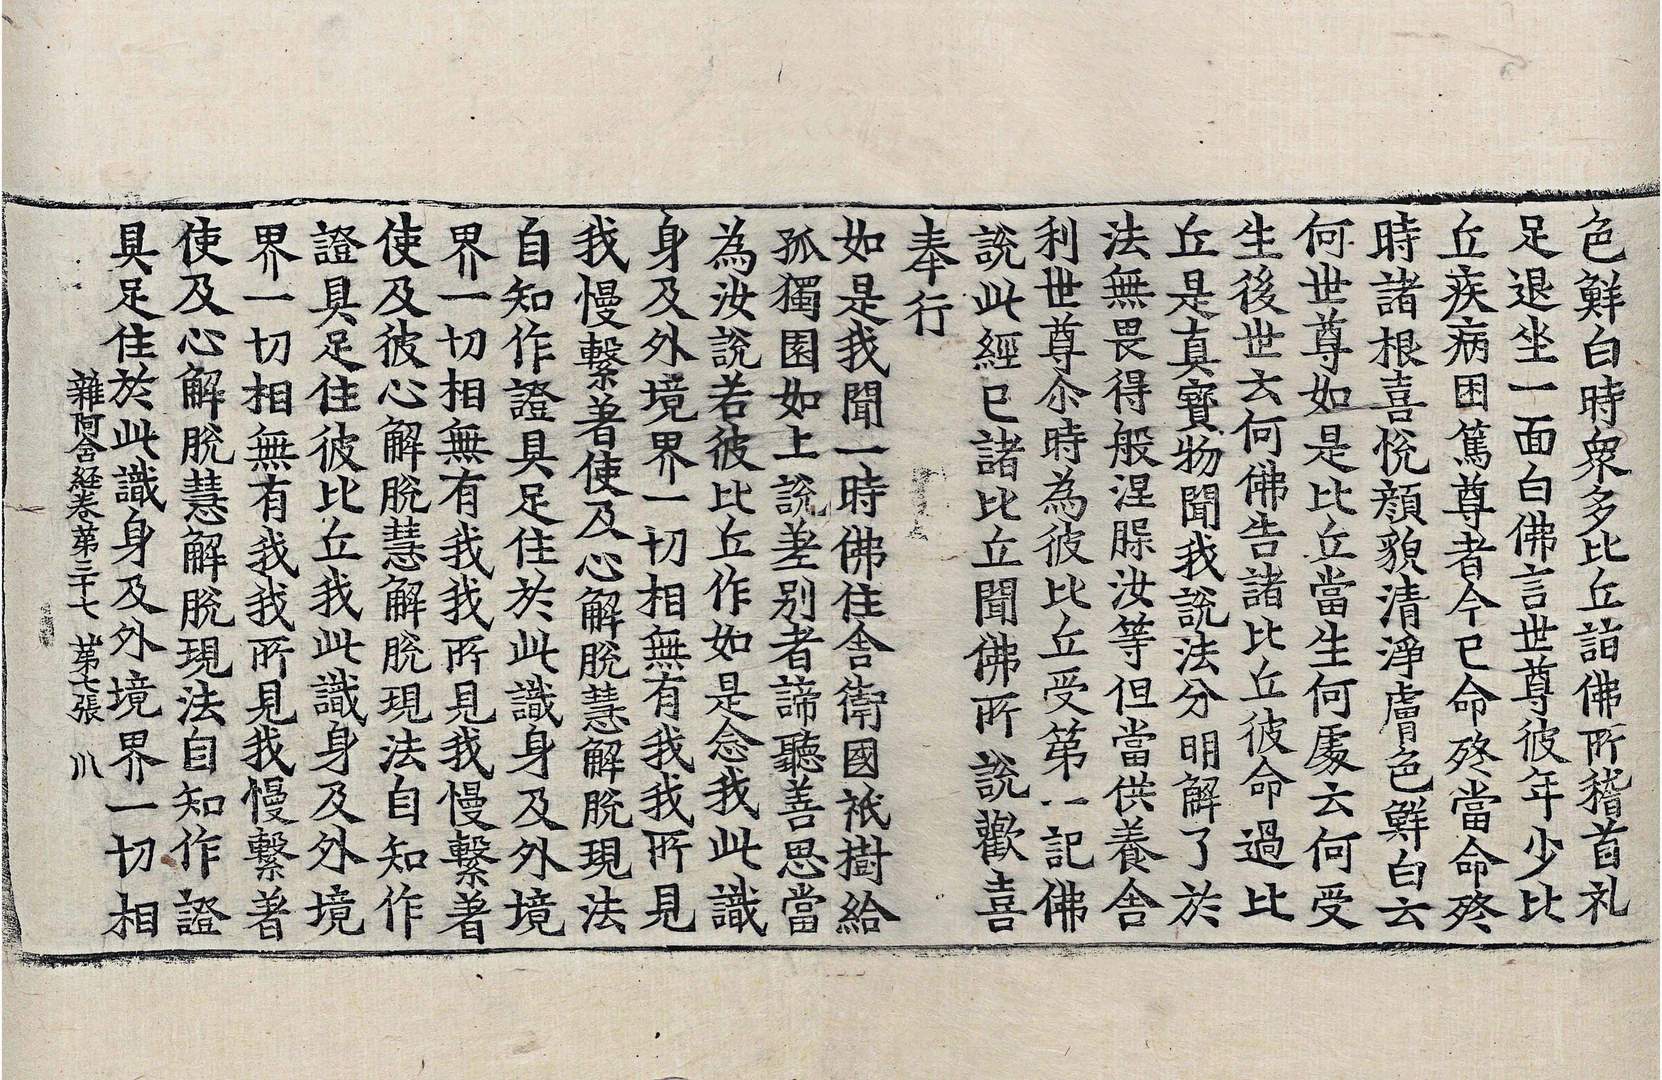 色鮮白時衆多比丘詣佛所稽首礼
足退坐一面白佛言世尊彼年少比
丘疾病困篤尊者今已命終當命終
時諸根喜悅顔貌清淨膚色鮮白云
何世尊如是比丘當生何處云何受
生後世云何佛告諸比丘彼命過比
丘是真寶物聞我說法分明解了於
法無畏得般涅槃汝等但當供養舍
利世尊尒時為彼比丘受第一記佛
說此經已諸比丘聞佛所說歡喜
奉行
如是我聞一時佛住舍衛國祇樹給
孤獨園如上說差別者諦聽善思當
為汝說若彼比丘作如是念我此識
身及外境界一切相無有我我所見
我慢繫著使及心解脫慧解脫現法
自知作證具足住於此識身及外境
界一切相無有我我所見我慢繫著
使及彼心解脫慧解脫現法自知作
證具足住彼比丘我此識身及外境
界一切相無有我我所見我慢繫著
使及心解脫慧解脫現法自知作證
具足住於此識身及外境界一切相
雜阿含経卷第三十七 第七張 川